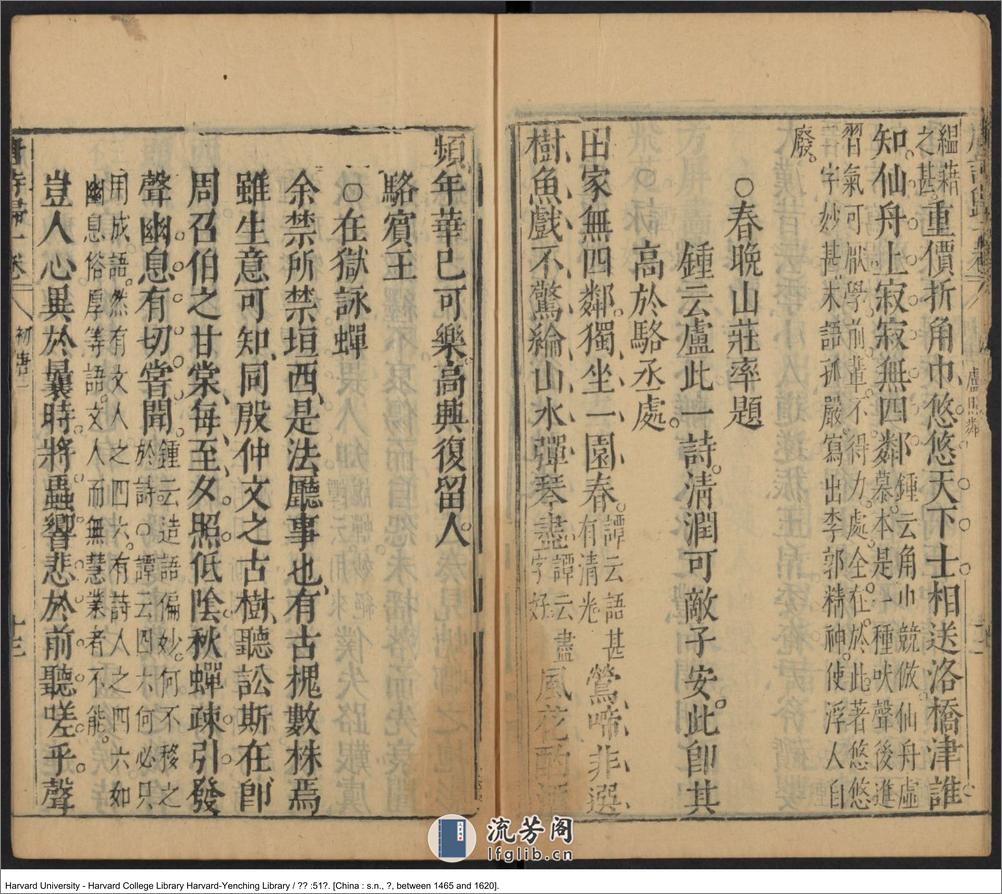 縕藉之甚。重價折角巾悠悠天下士相送洛橋津誰
知仙舟上寂寂無四鄰鍾云角巾競倣仙舟虛慕本是一種吠聲後進
習氣可厭學前輩不得力處全在於此著悠悠
字妙甚末語孤嚴寫出李郭精神使浮人自
廢。
○春晚山莊率題
鍾云盧此一詩清潤可敵子安此卽其
高於駱丞處
田家無四鄰獨坐一園春譚云語甚有清光鶯啼非選
樹魚戲不驚綸山水彈琴盡譚云盡字好風花酌酒
頻年華已可樂高興復留人
駱賓王
○在獄詠蟬
余禁所禁垣西是法廳事也有古槐數株焉
雖生意可知同殷仲文之古樹聽訟斯在卽
周召伯之甘棠每至夕照低陰秋蟬疎引發
聲幽息有切嘗聞鍾云造語偏妙何不移之於詩○譚云四六何必只
用成語然有文人之四六有詩人之四六如
幽息俗厚等語文人而無慧業者不能
豈人心異於曩時將蟲響悲於前聽嗟乎聲
盧照鄰
初唐一
十三
流芳阁
lfglib.cn
Harvard University - Harvard College Library Harvard-Yenching Library / ?? :51?. [China : s.n., ?, between 1465 and 1620].